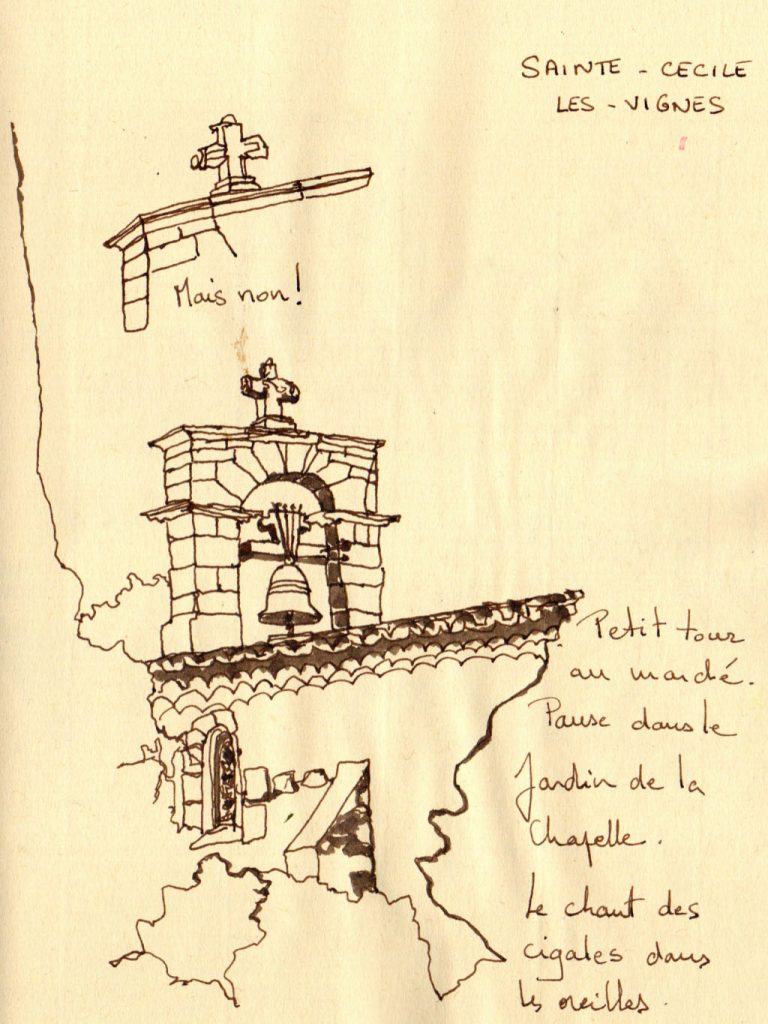 SAINTE - CECILE
LES - VIGNES
Mais non!
Petit tour
au marché.
Pause dans le
Jardin de la
Chapelle.
Le chant des
cigales dans
les oreilles.